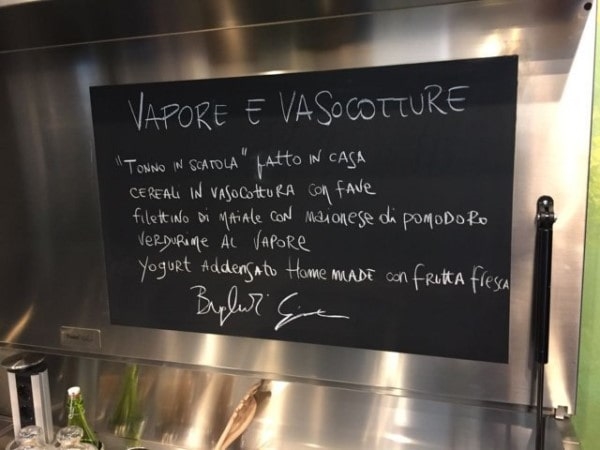 VAPORE E VASOCOTTURE
"TONNO IN SCATOLA" fATTO IN CASA
CEREALI IN VASOCOTTURA CON fAVE
filettino DI MAIALE CON MAIONESE di POMODORO
VERDURINE AL VAPORE
YOGURT AddENSATO Home MADE con fRUTTA fRESCA